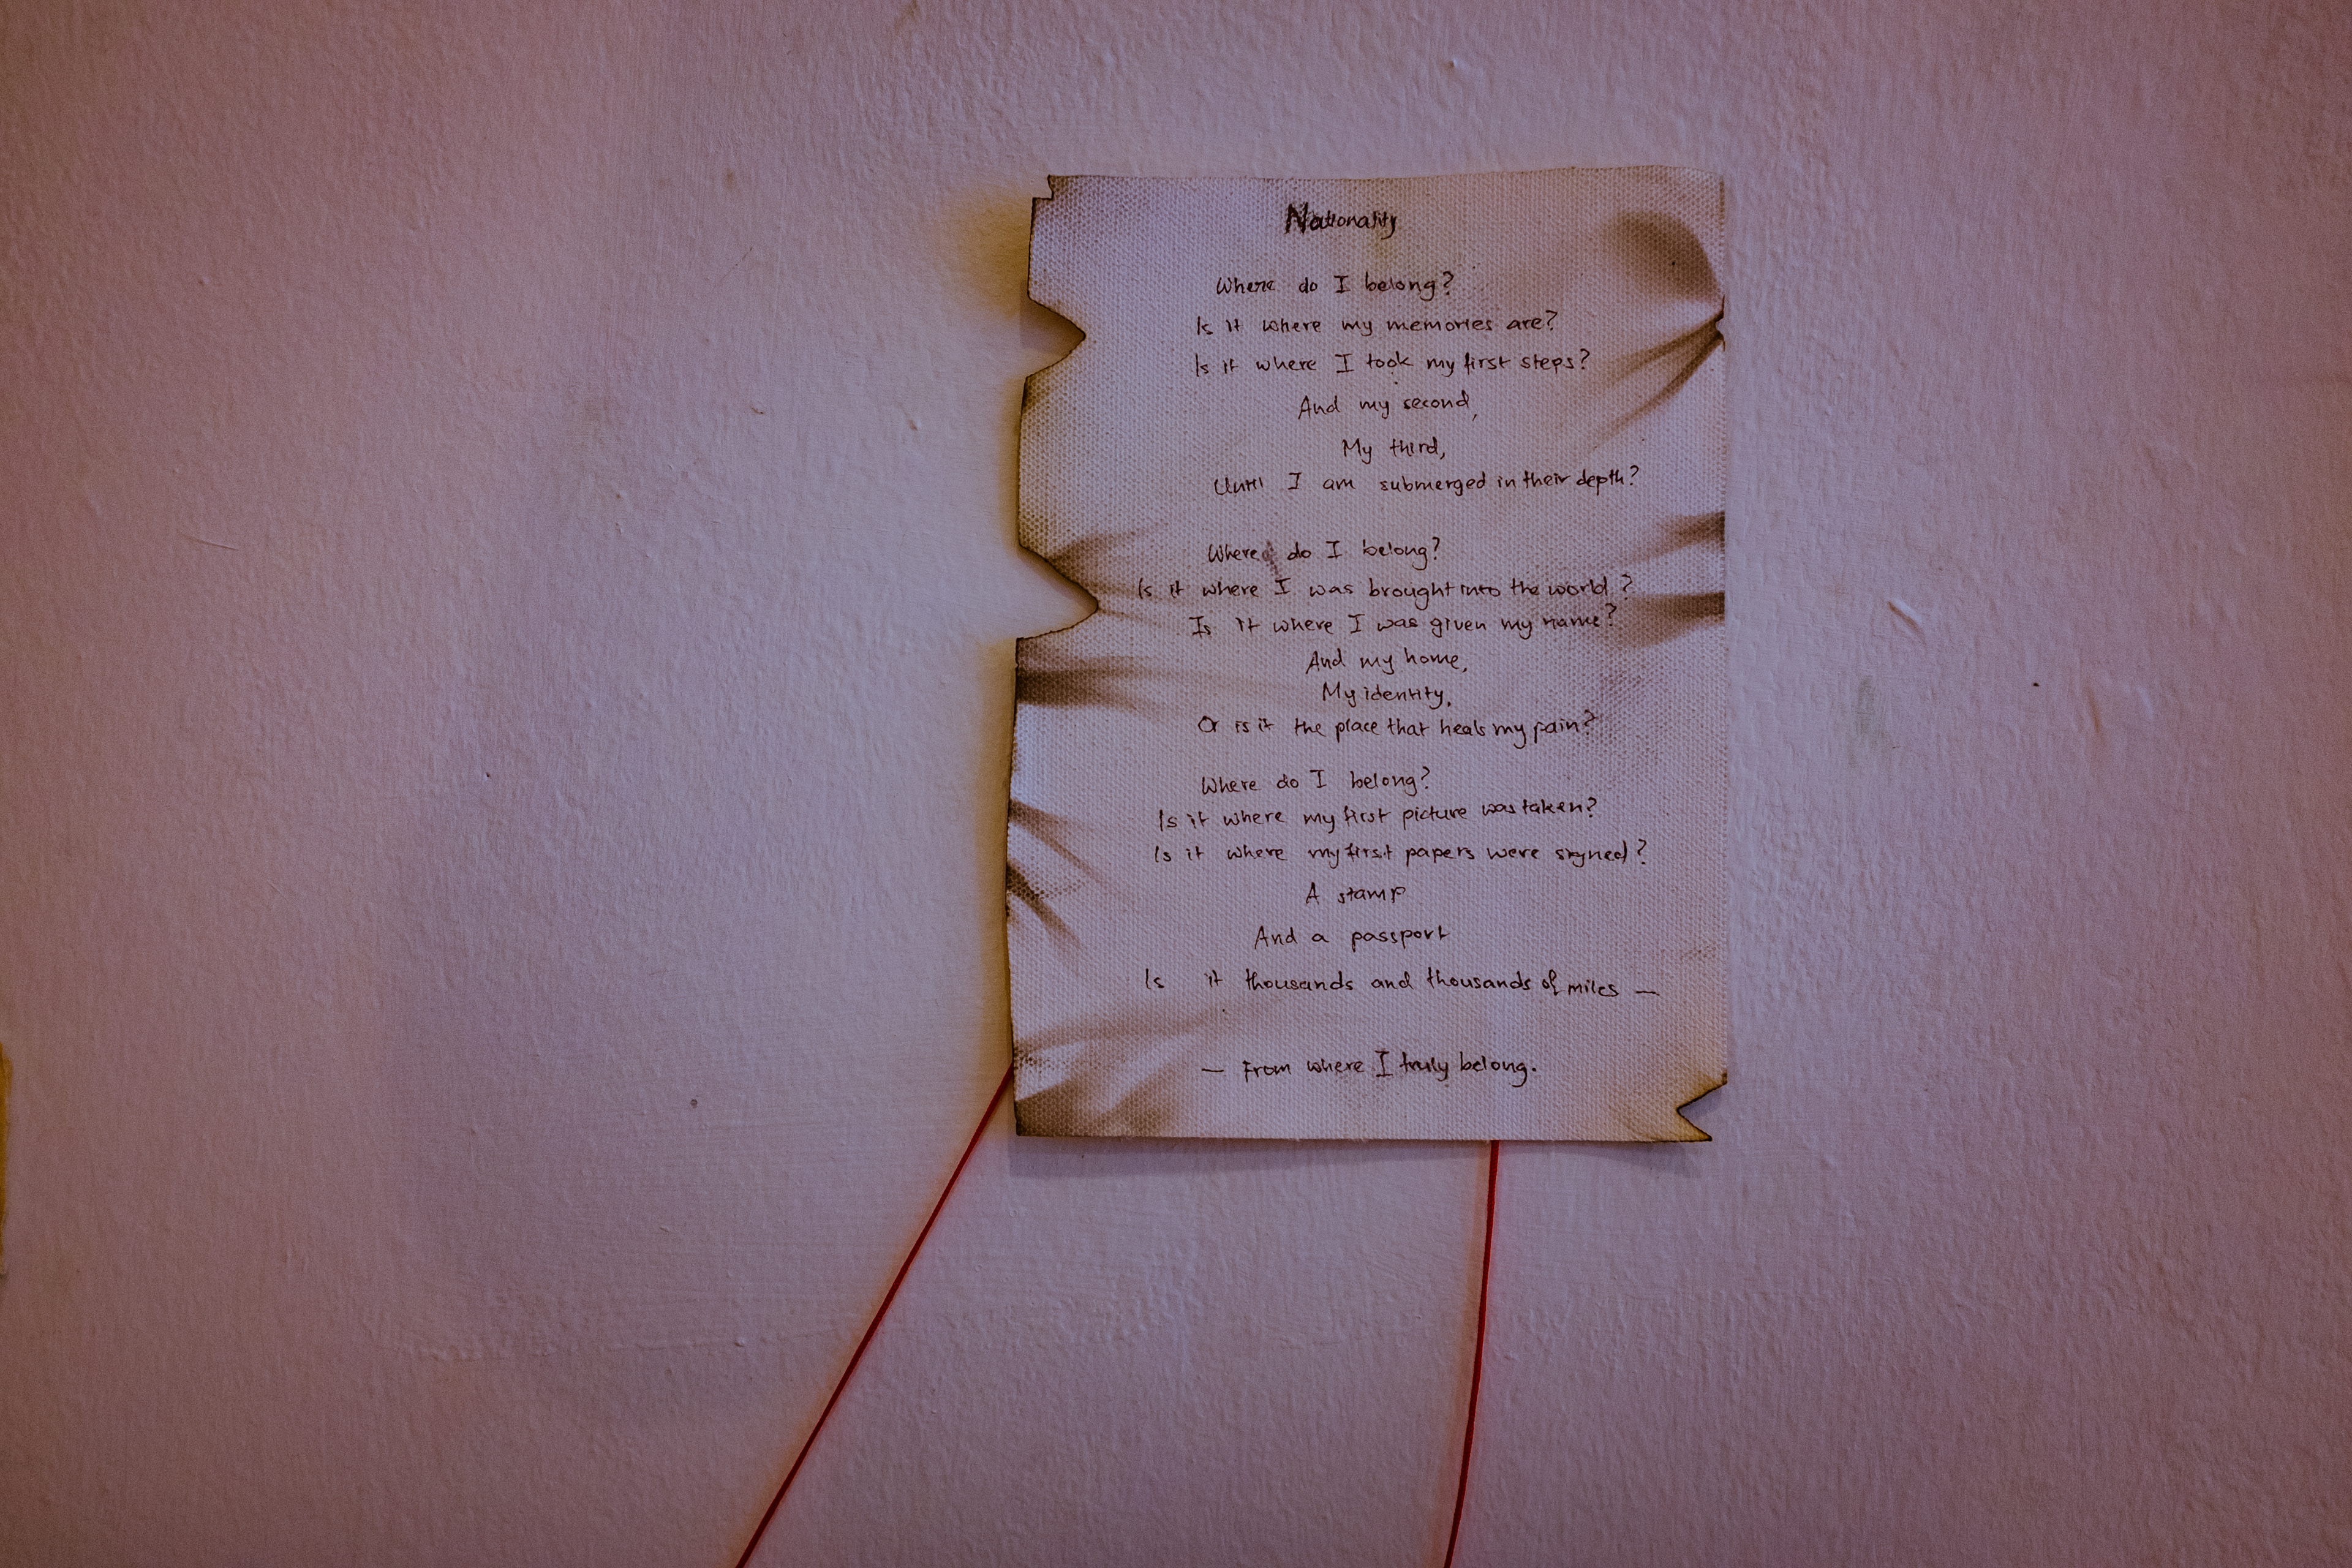 Nationality
Where do I belong?
Is it where my memories are?
Is it where I took my first steps?
And my second,
My third,
Until I am submerged in their depth?
Where do I belong?
Is it where I was brought into the world?
Is it where I was given my name?
And my home,
My identity,
Or is it the place that heals my pain?
Where do I belong?
Is it where my first picture was taken?
Is it where my first papers were signed?
A stamp
And a passport
Is it thousands and thousands of miles —
— From where I truly belong.